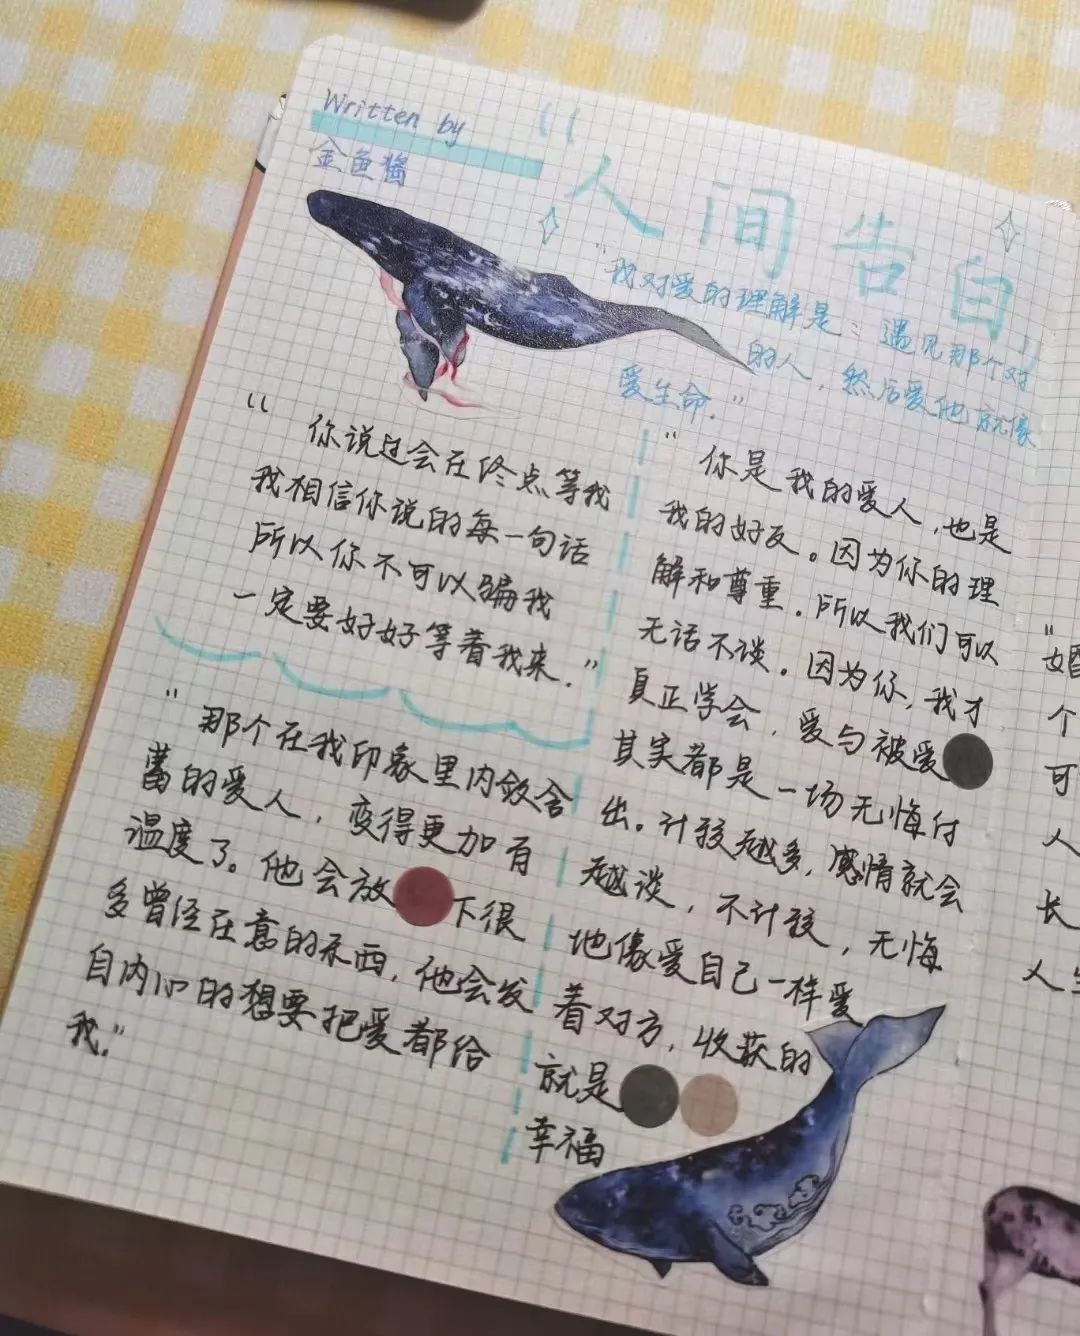 Written by
金鱼酱
“人间告白”
“我对爱的理解是：遇见那个对
的人，然后爱他就像
爱生命.”
“你说过会在终点等我
我相信你说的每一句话
所以你不可以骗我
一定要好好等着我来.”
“那个在我印象里内敛含
蓄的爱人，变得更加有
温度了。他会放下很
多曾经在意的东西，他会发
自内心的想要把爱都给
我.”
“你是我的爱人，也是
我的好友。因为你的理
解和尊重，所以我们可以
无话不谈。因为你，我才
真正学会，爱与被爱
其实都是一场无悔付
出。计较越多，感情就会
越谈，不计较，无悔
地像爱自己一样爱
着对方，收获的
就是
幸福
“婚
个
可
人
长
人生